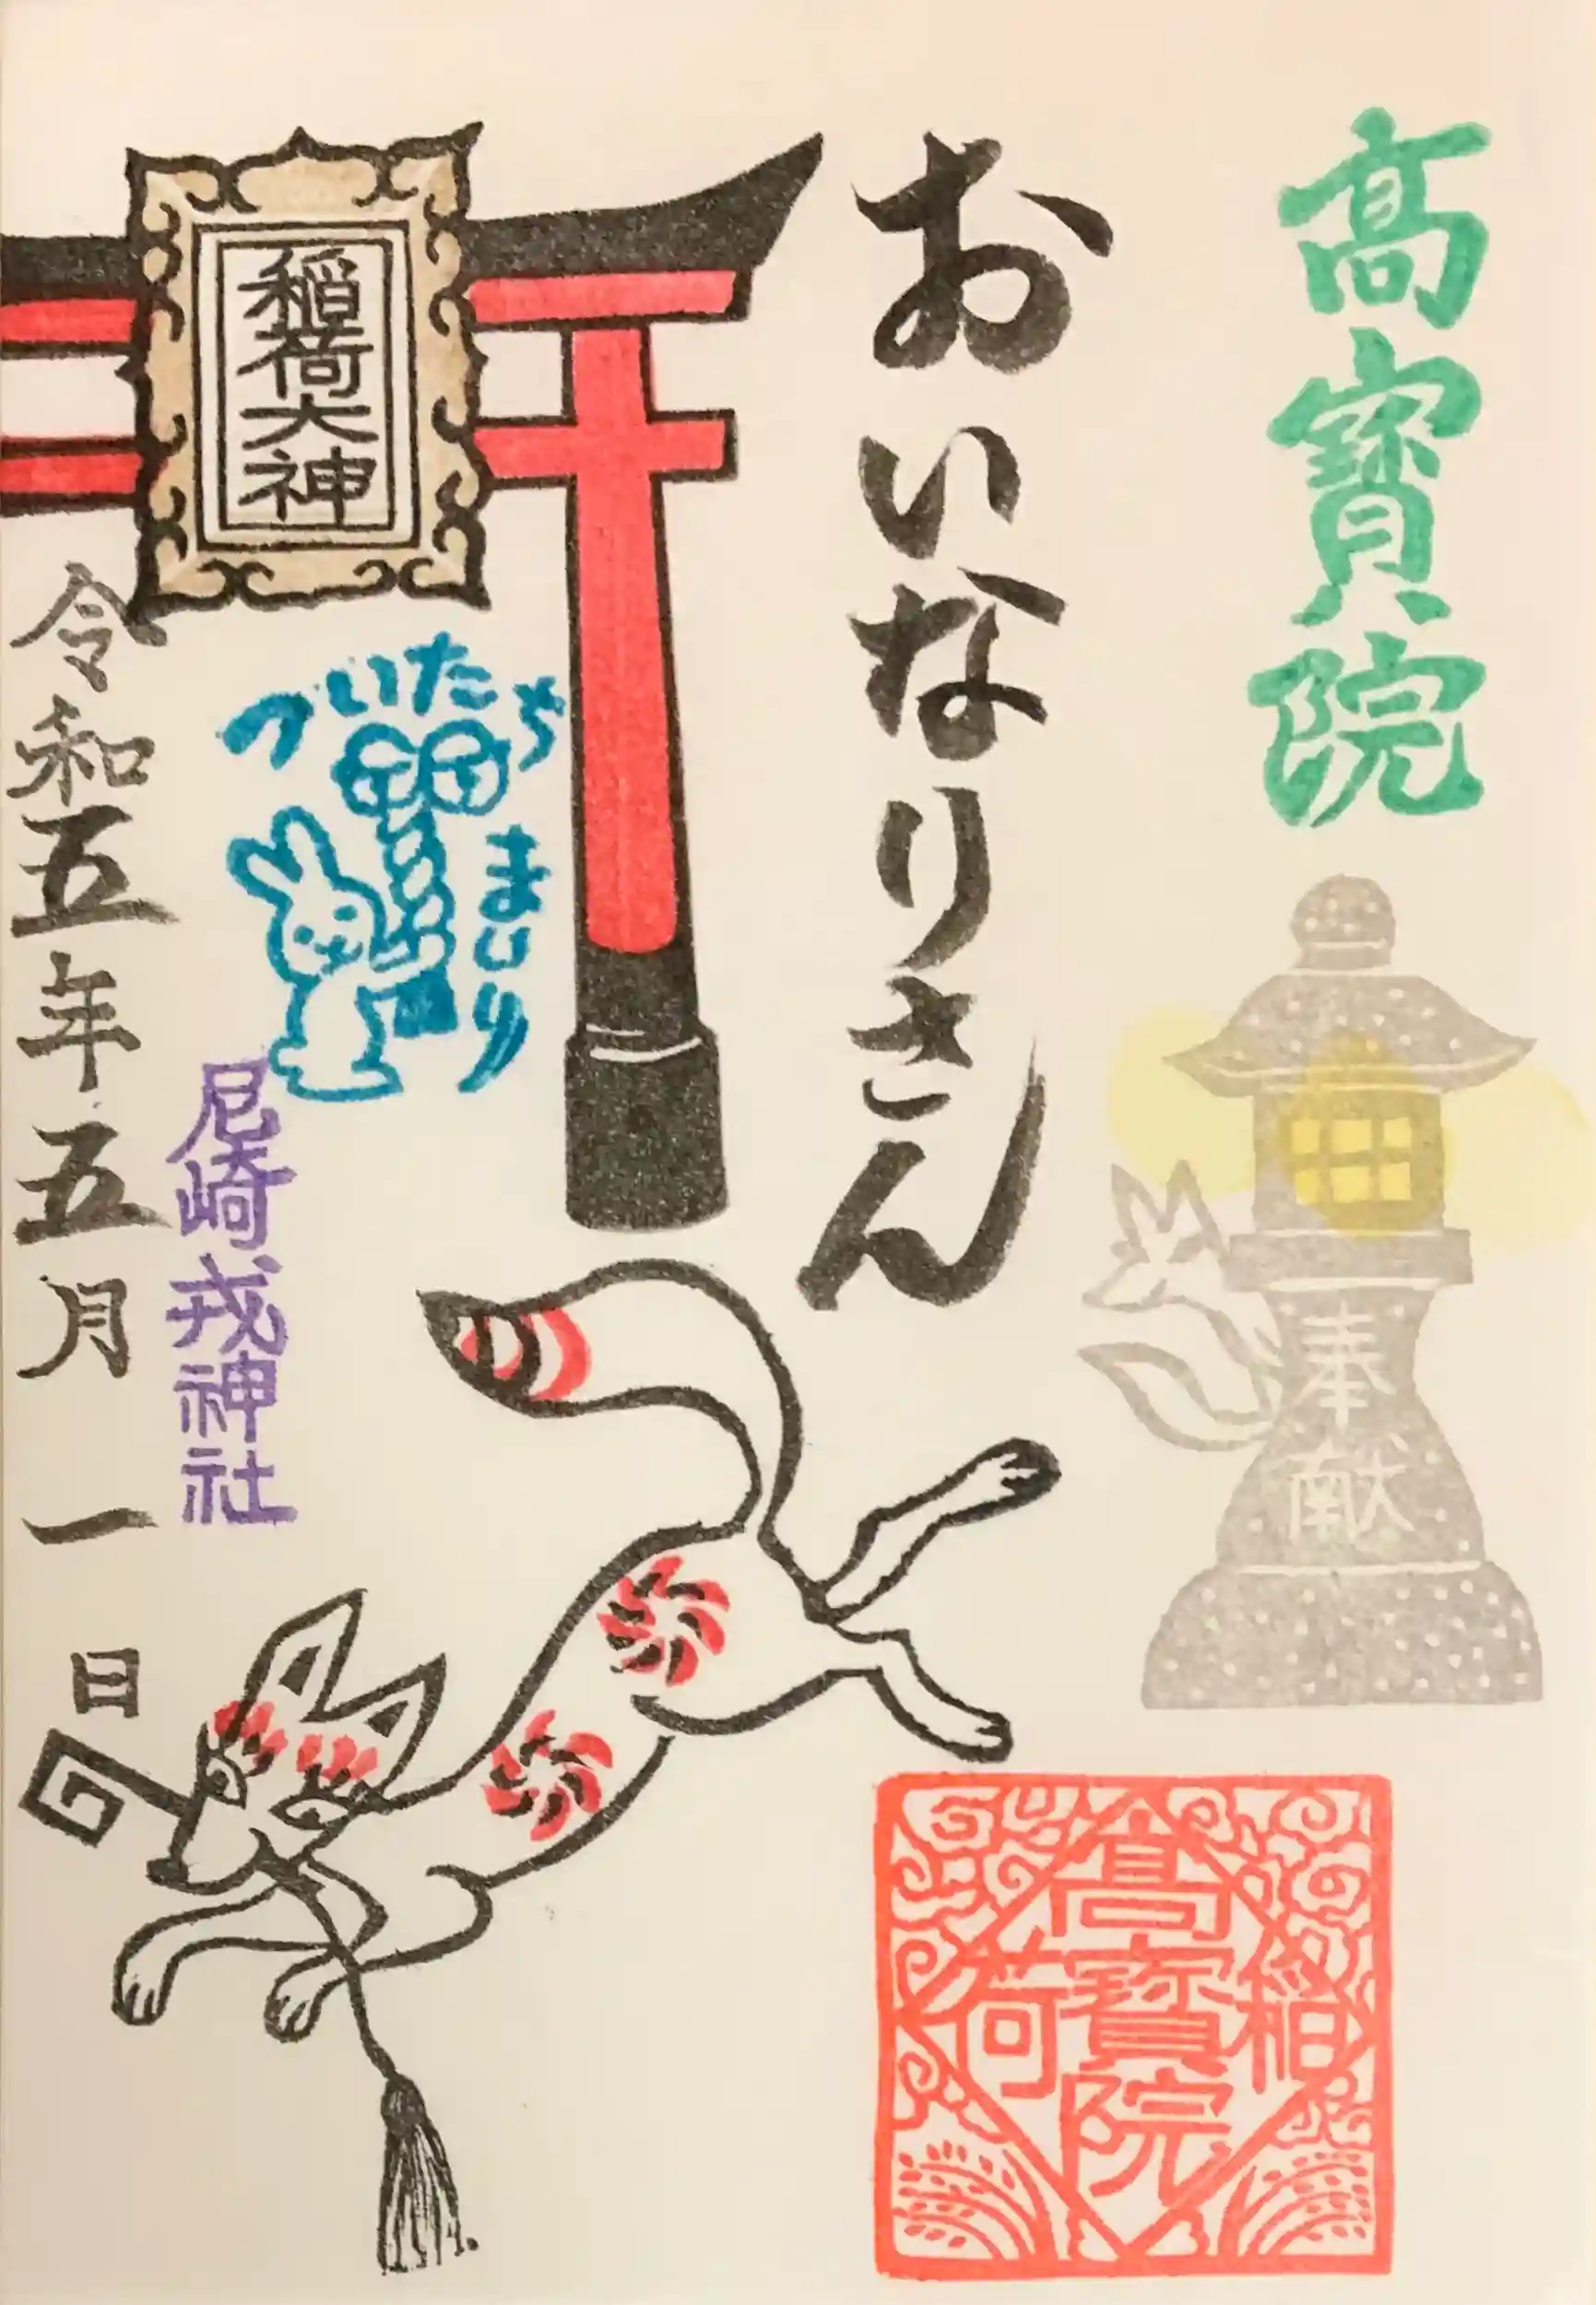 高寳院
奉献
おいなりさん
稲荷大神
ついたち
まいり
尼崎戎神社
令和五年五月一日
稲
高寳院
荷